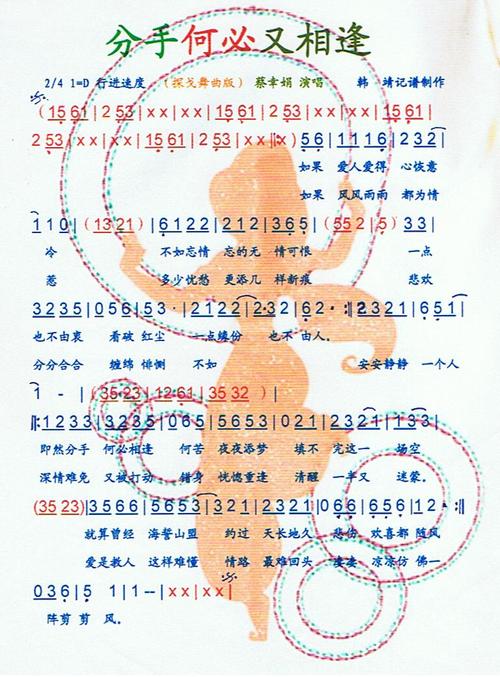 分手何必又相逢
2/4 1=D 行进速度 （探戈舞曲版） 蔡幸娟 演唱 韩 靖记谱制作
（15 61| 2 53|xx|xx|15 61|2 53|xx|xx|15 61|
2 53|xx|xx|15 61|2 53|xx|xx）56|1116|232|
如果 爱人爱得 心恢意
如果 风风雨雨 都为情
110|（13 21）|6122|212|365|（552|5）33|
冷 不如忘情 忘的无 情可恨 一点
惹 多少忧愁 更添几 样新痕 悲欢
3235|056|53·|2122|232|62·:‖2321|651|
也不由衷 看破 红尘 一点缘份 也不 由人。
分分合合 缠绵 悱恻 不如 安安静静 一个人
1 - |（35 23|12 61|35 32 ）|
‖:1233|3235|065|5653|021|2321|133|
即然分手 何必相逢 何苦 夜夜添梦 填不 完这一 场空
深情难免 又被打动 错身 恍惚重逢 清醒 一半又 迷蒙。
（35 23）|3566|5653|321|2321|066|656|12·:‖
就算曾经 海誓山盟 约过 天长地久 悲伤 欢喜都 随风
爱是教人 这样难懂 情路 最难回头 凄凄 凉凉仿 佛一
036|5 1|1--|xx|xx|
阵剪 剪 风。